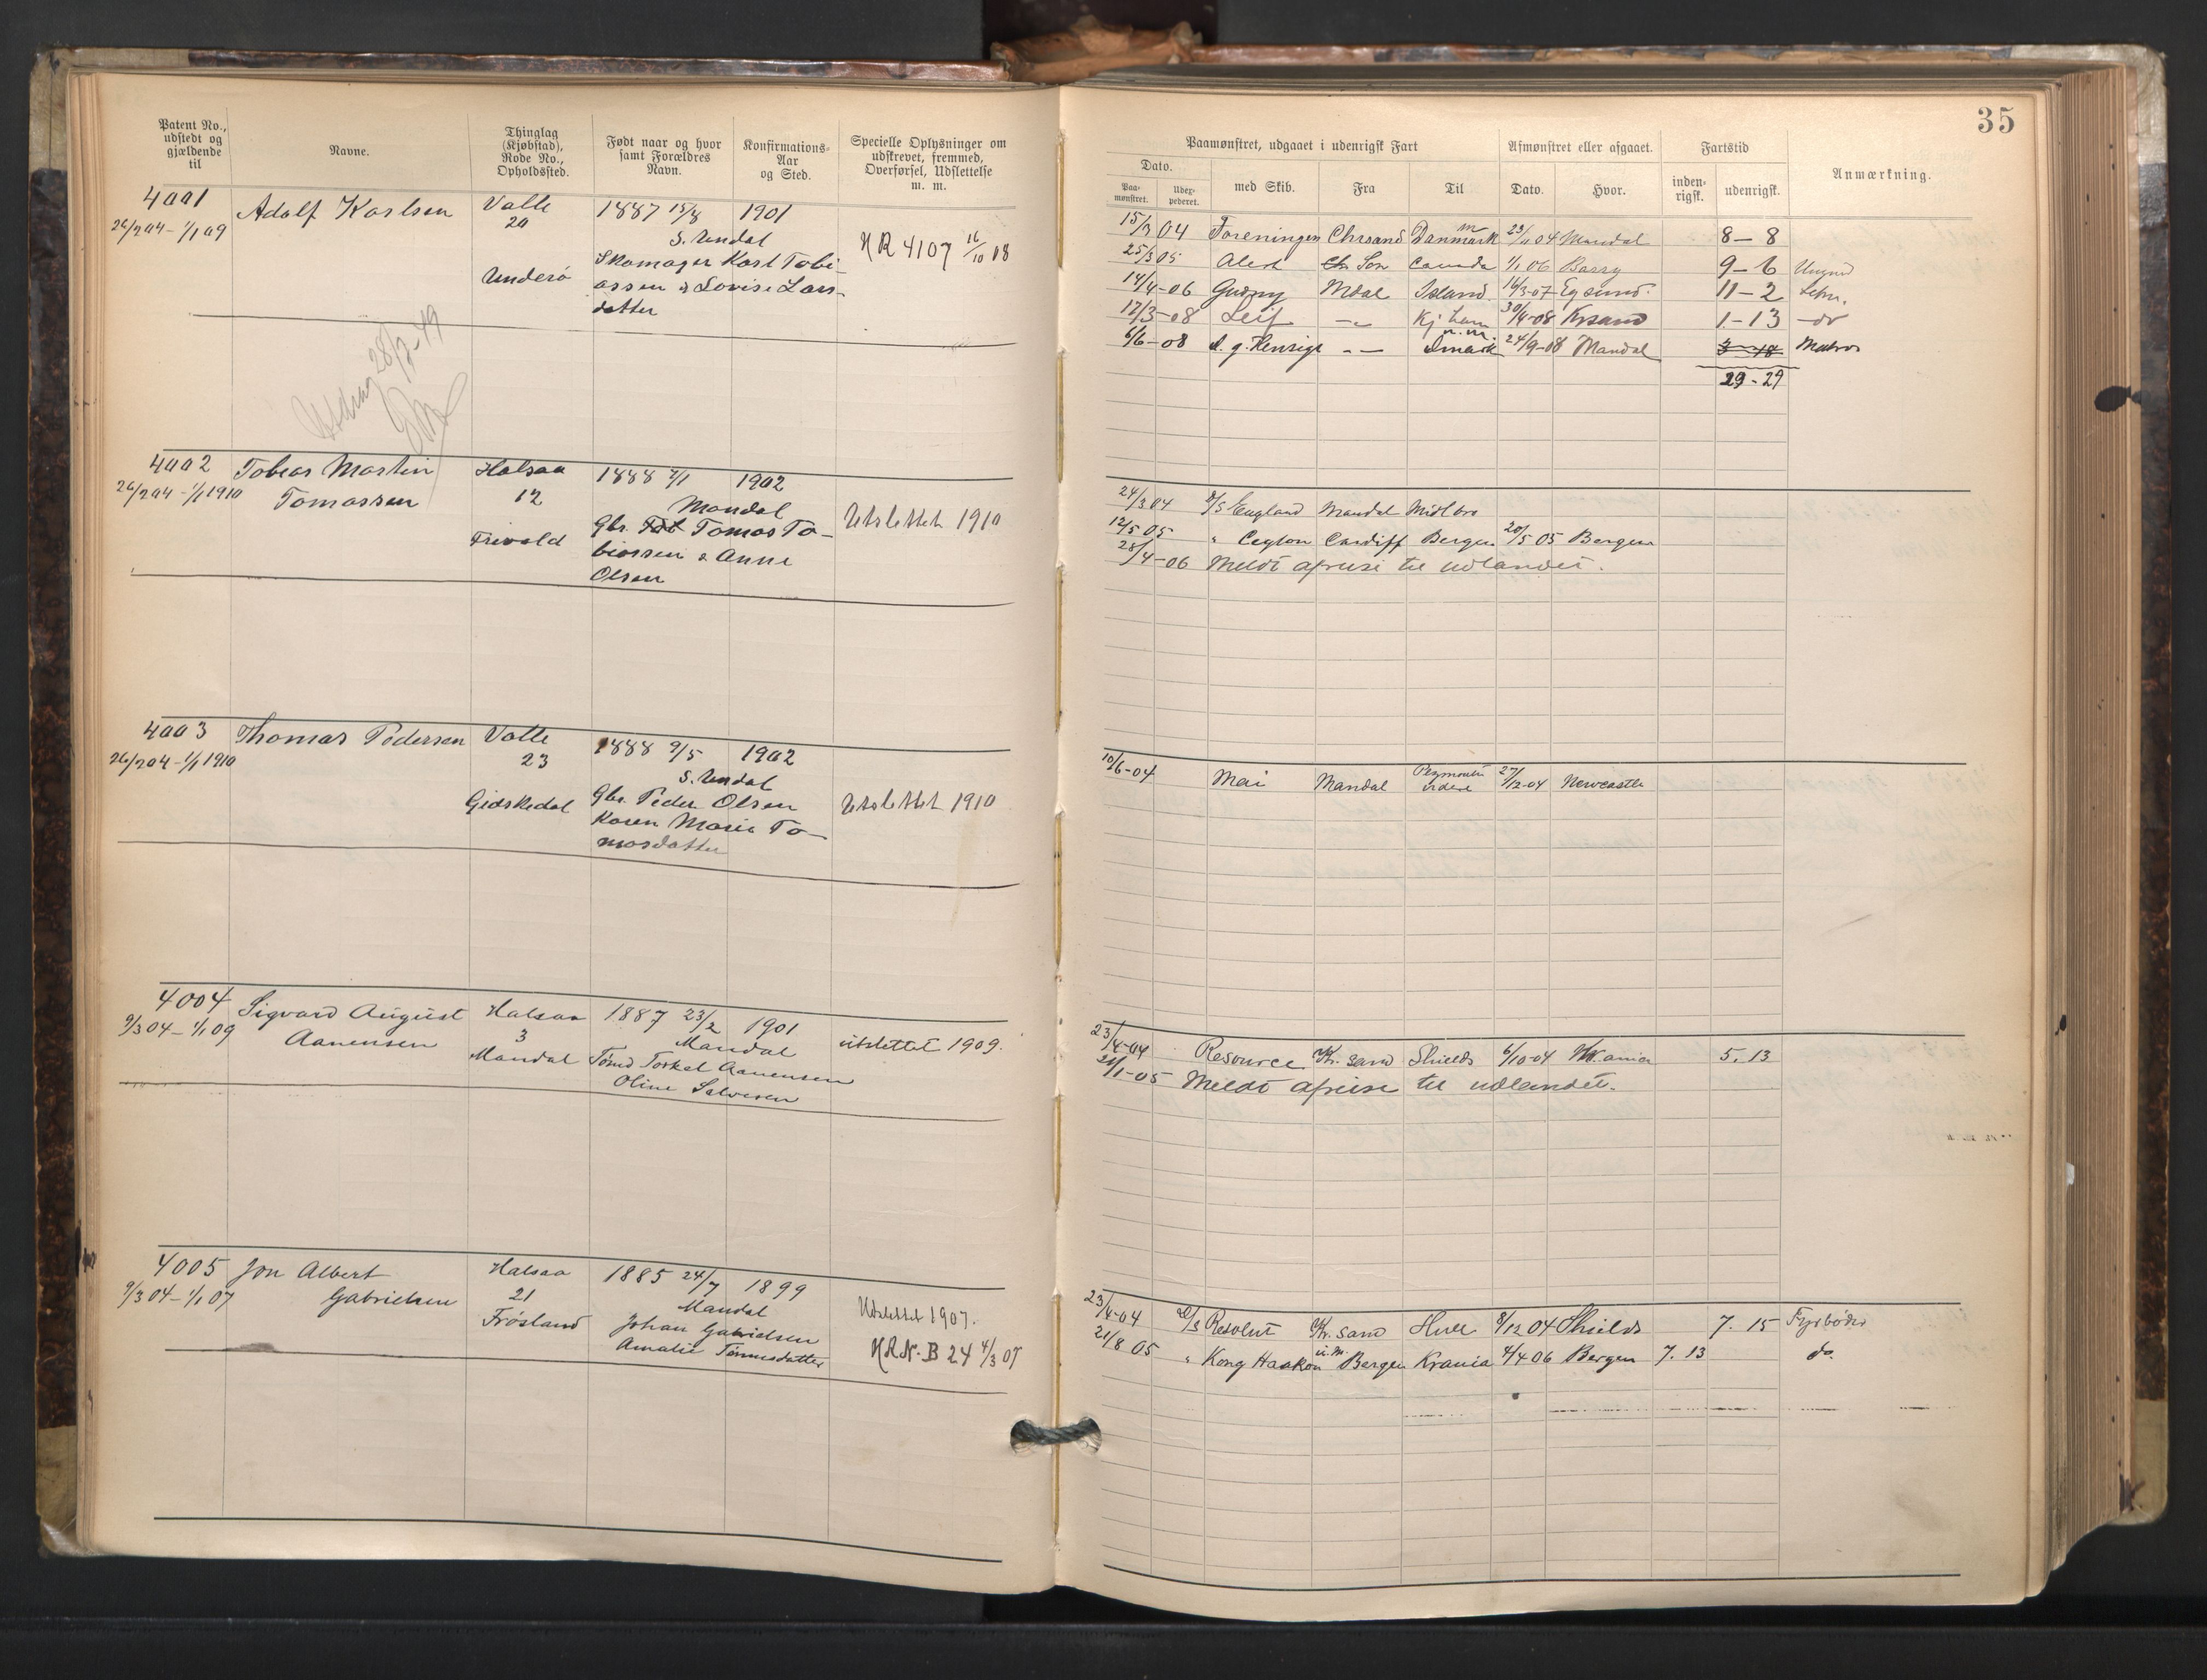 Patent No., udstedt og gjældende til
Navne.
Thinglag (Kjøbstad), Rode No., Opholdssted.
Født naar og hvor samt Forældres Navn.
Konfirmations-Aar og Sted.
Specielle Oplysninger om udskrevet, fremmed, Overførsel, Udslettelse m. m.
4001
26/2 04 - 1/1 09
Adolf Karlsen
Valle
20
Underö
1887 15/8 1901
S. Undal
Skomager Karl Tobi-
assen & Lovise Lars-
datter
HR 4107 16/10 08
28/3-49
4002
26/2 04 - 1/1 1910
Tobias Martin
Tomassen
Halsaa
12
Frivold
1888 7/1 1902
Mandal
Gbr. Tomas To-
biassen & Anne
Olsen
Utslettet 1910
4003
26/2 04 - 1/1 1910
Thomas Pedersen
Valle
23
Gidskedal
1888 9/5 1902
S. Undal
Gbr. Peder Olsen
Karen Marie To-
masdatter
Utslettet 1910
4004
9/3 04 - 1/1 09
Sigvard August
Aanensen
Halsaa
3
Mandal
1887 23/2 1901
Mandal
Tømd Torkel Aanensen
Oline Salvesen
utslettet 1909.
4005
9/3 04 - 1/1 07
Jon Albert
Gabrielsen
Halsaa
21
Frøsland
1885 24/7 1899
Mandal
Johan Gabrielsen
Amalie Tønnesdatter
Utslettet 1907.
HRN. B 24 4/3 07
35
Paamønstret, udgaaet i udenrigsk Fart
Afmønstret eller afgaaet.
Fartstid
Anmærkning.
Dato.
Paa-mønstret.
Uder-pederet.
med Skib.
Fra
Til
Dato.
Hvor.
inden-rigsk.
udenrigsk.
15/3 04 Foreningen Chrsand Danmark m 23/11 04 Mandal 8 - 8
25/3 05 Alert Son Canada 1/1 06 Barry 9 - 6 Ungmd
14/4-06 Gudny Mdal Island 16/3-07 Egsund. 11 - 2 Letm.
17/3-08 Leif - Kj havn 30/4-08 Krsand 1-13 do
6/6-08 A. g. Henrigt - - n.m. Dmark 24/9-08 Mandal 3-18 Matros
29 - 29
24/3 04 D/S England Mandal Midlbro
12/5 05 " Ceylon Cardiff Bergen 20/5 05 Bergen
28/4-06 Meldt afreise til udlandet.
10/6-04 Mai Mandal Plymouth videre 27/12-04 Newcastle
23/4-04 Resource Kr. sand Shields 6/10-04 Krania 5. 13
21/1-05 Meldt afreise til udlandet.
23/4-04 D/S Resolut Kr. sand Hull 8/12 04 Shields 7. 15 Fyrbøder
21/8 05 " Kong Haakon u.m. Bergen Krania 4/4 06 Bergen 7. 13 do.